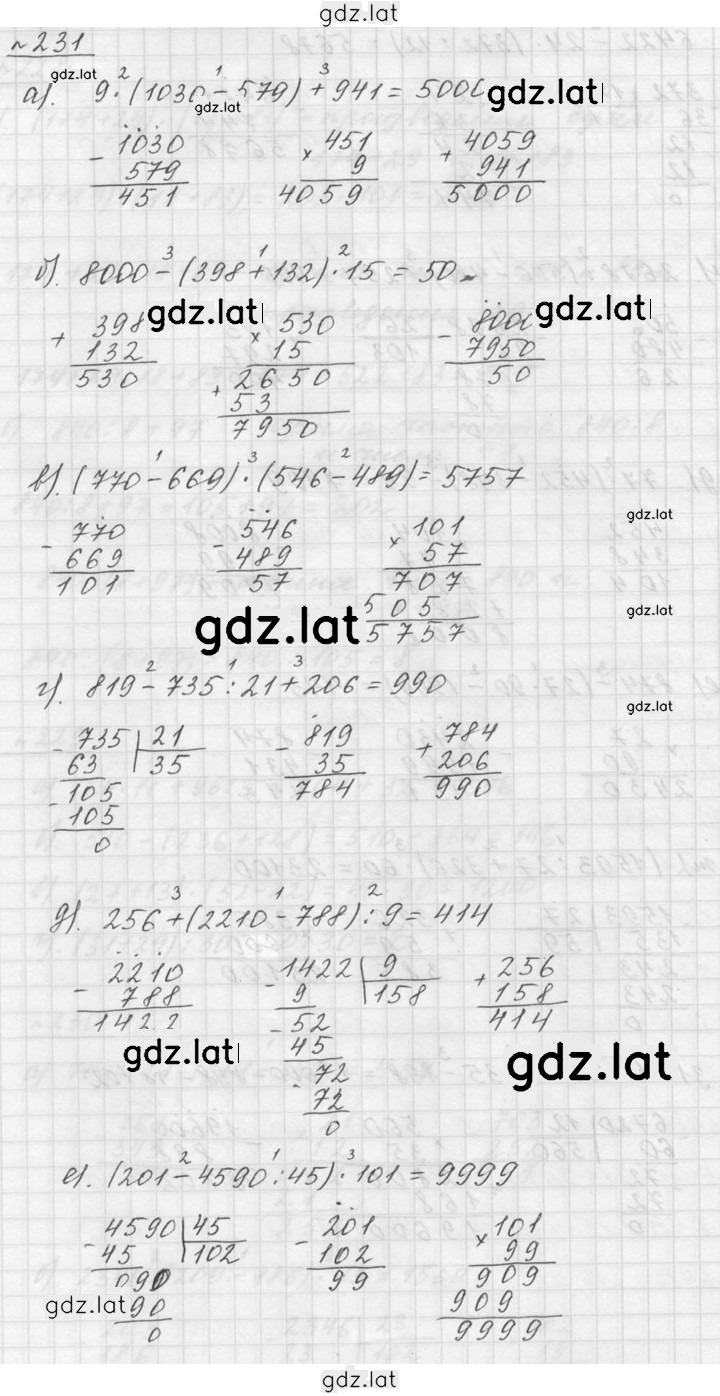 gdz.lat
№231
gdz.lat
а). 9·(1030-579)+941=5000
2 1 3
gdz.lat
-1030 ×451 +4059
579 9 941
451 4059 5000
б). 8000-(398+132)·15=50
3 1 2
gdz.lat gdz.lat
+398 ×530 -8000
132 15 7950
530 +2650 50
53
7950
в). (770-669)·(546-489)=5757
1 3 2
gdz.lat
-770 -546 ×101
669 489 57
101 57 707
505
5757
gdz.lat gdz.lat
г). 819-735:21+206=990
2 1 3
gdz.lat
-735|21 -819 +784
63 35 35 206
-105 784 990
105
0
д). 256+(2210-788):9=414
3 1 2
-2210 -1422|9 +256
788 9 158 158
1422 -52 414
45
-72
72
0
gdz.lat gdz.lat
е). (201-4590:45)·101=9999
2 1 3
-4590|45 -201 ×101
45 102 102 99
090 99 909
90 909
0 9999
gdz.lat
gdz.lat